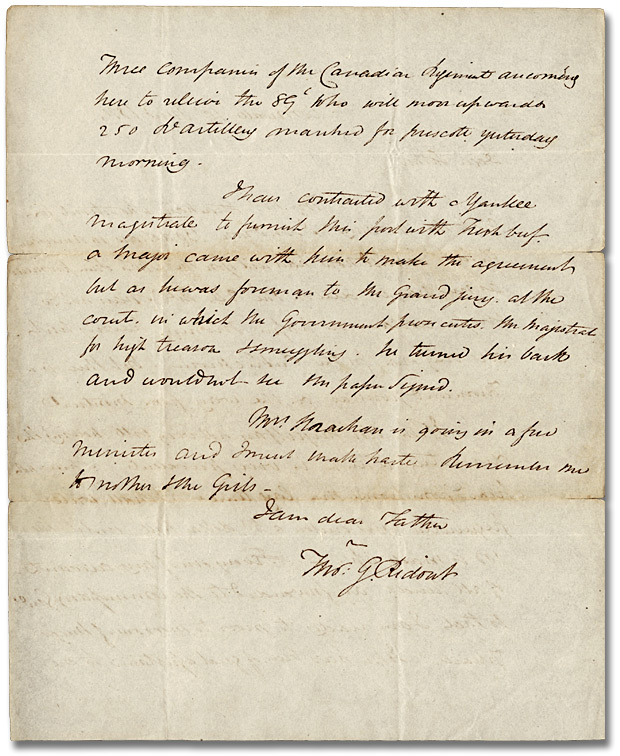 Three companies of the Canadian Regiment are coming
here to relieve the 89th who will move upwards
250 Dr artillery marched for prescott yesterday
morning.
I have contracted with a Yankee
magistrate to furnish this post with Fresh beef.
a major came with him to make the agreement
but as he was foreman to the Grand jury. at the
court. in which the Government prosecutes the magistrate
for high treason & smuggling. he turned his back
and wouldnt see the paper signed.
Mrs Strachan is going in a few
minutes and I must make haste Remember me
to mother & the Girls -
I am dear Father
Thos. G. Ridout